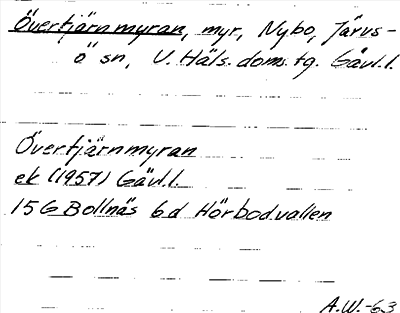 Övertjärnmyran, myr, Nybo, Järvs-
ö sn, V. Häls. doms. tg. Gävl.l.
Övertjärnmyran
ek (1957) Gävl.l.
15 G Bollnäs 6 d Hörbodvallen
A.W.-63